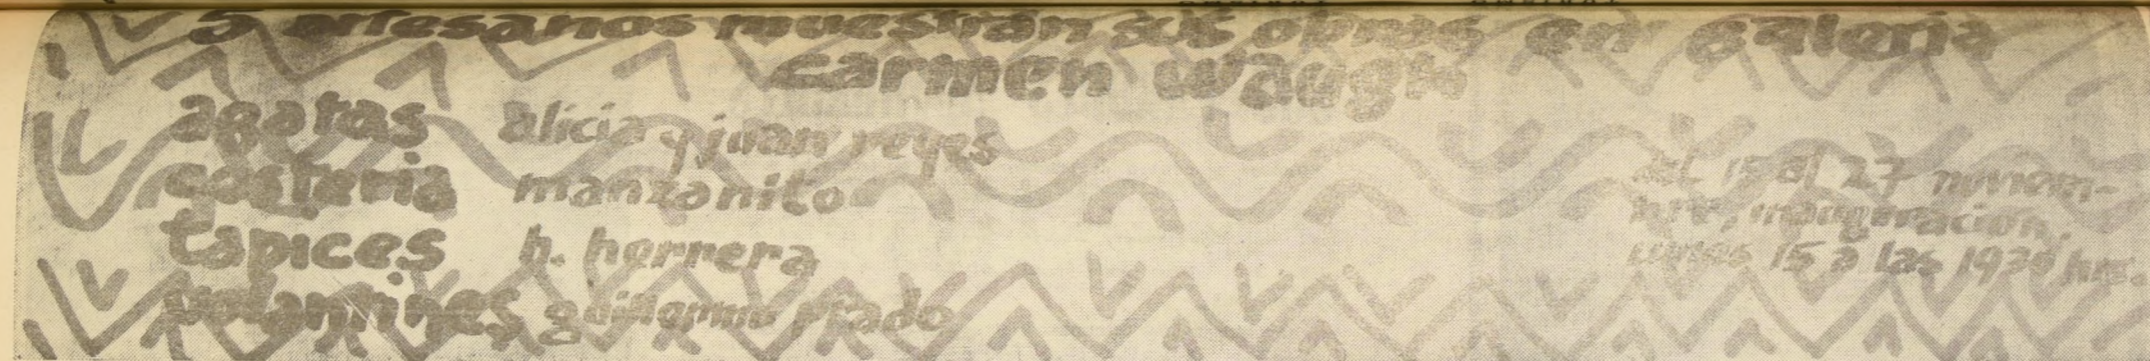 5 artesanos muestran sus obras en galeria
carmen waugh
agatas alicia y juan reyes
cesteria manzanito
tapices h. herrera
volantines guillermo prado
del 15 al 27 noviem-
bre, inauguracion,
lunes 15 a las 1930 hrs.